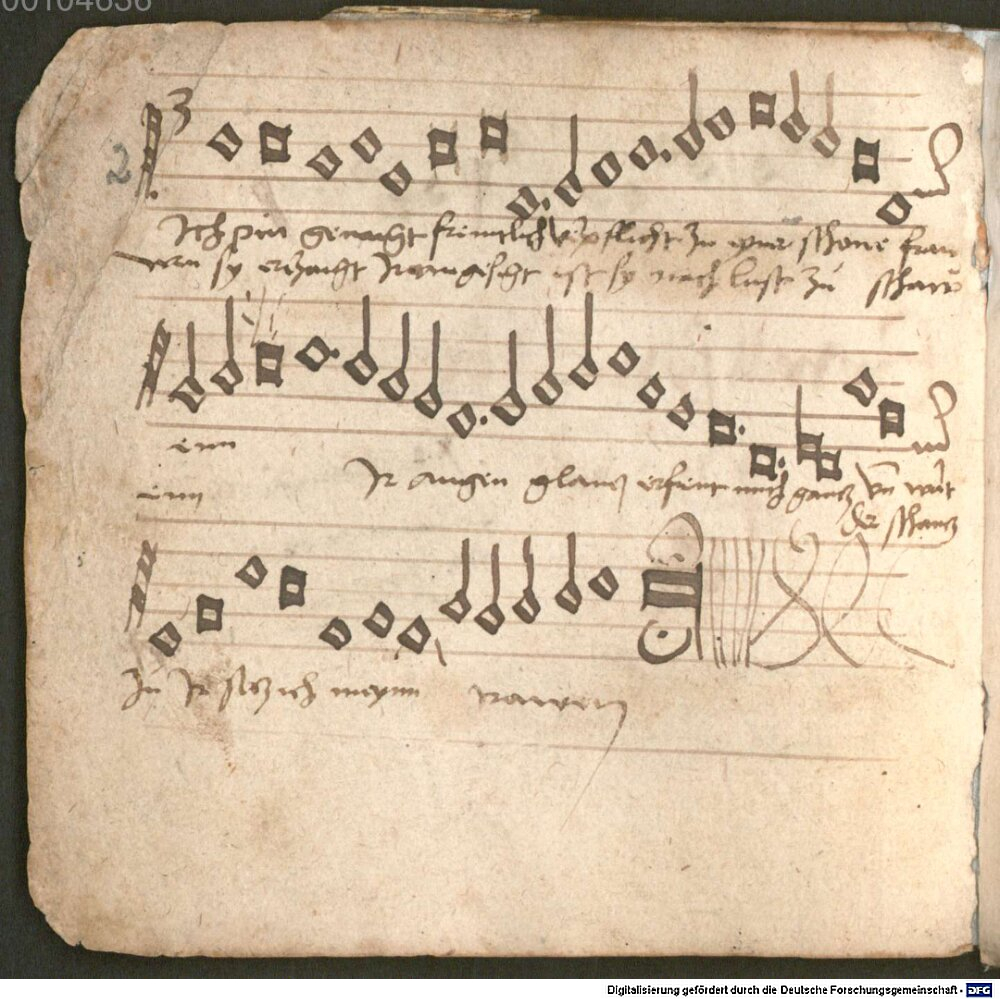 00104636
3
2
Ich pin gemacht freuntlich verpflicht zu eyner schone fraw
wen sy erzaicht Ir angesicht ist sy nach lust zu schaw
enn
enn Ir augen glantz erfreut mich gantz
der schantz
In Ir setz ich meynn trawen
Digitalisierung gefördert durch die Deutsche Forschungsgemeinschaft - DFG